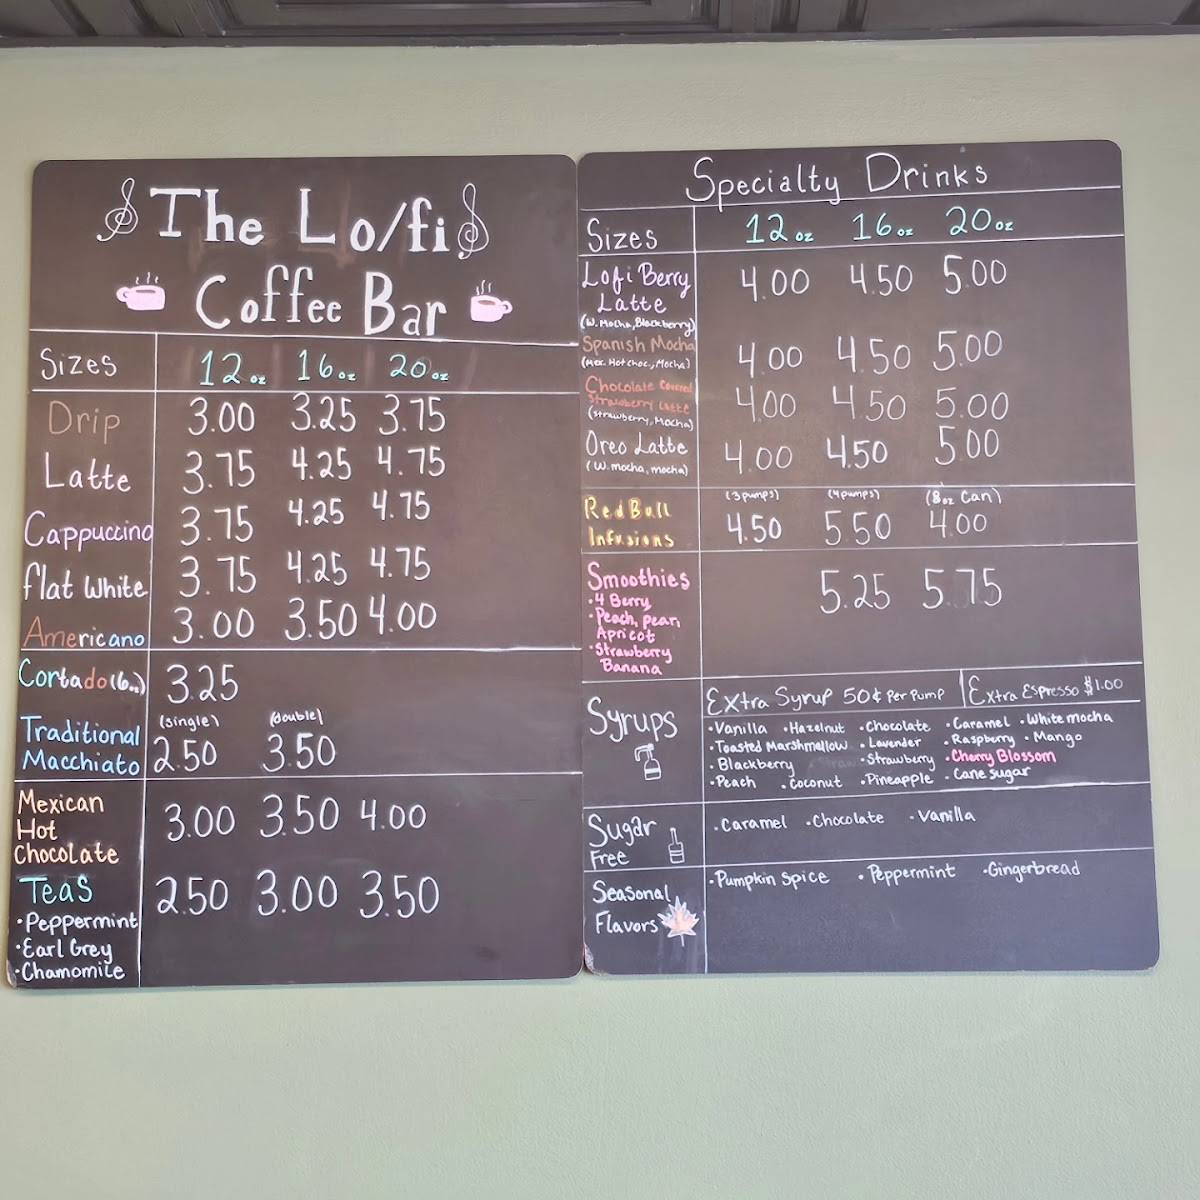 The Lo/fi
Coffee Bar
Sizes 12oz 16oz 20oz
Drip 3.00 3.25 3.75
Latte 3.75 4.25 4.75
Cappuccino 3.75 4.25 4.75
flat White 3.75 4.25 4.75
Americano 3.00 3.50 4.00
Cortado (6oz) 3.25
(single) (double)
Traditional
Macchiato 2.50 3.50
Mexican
Hot
Chocolate 3.00 3.50 4.00
Teas 2.50 3.00 3.50
•Peppermint
•Earl Grey
•Chamomile
Specialty Drinks
Sizes 12oz 16oz 20oz
Lofi Berry
Latte 4.00 4.50 5.00
(W. Mocha, Blackberry)
Spanish Mocha 4.00 4.50 5.00
(Mex. Hot choc., Mocha)
Chocolate Covered
Strawberry Latte 4.00 4.50 5.00
(strawberry, Mocha)
Oreo Latte 4.00 4.50 5.00
(W. mocha, mocha)
(3 pumps) (4 pumps) (8oz Can)
Red Bull
Infusions 4.50 5.50 4.00
Smoothies 5.25 5.75
•4 Berry
•Peach, pear,
Apricot
•Strawberry
Banana
Syrups
Extra Syrup 50¢ Per Pump Extra Espresso $1.00
•Vanilla •Hazelnut •Chocolate •Caramel •White mocha
•Toasted Marshmallow •Lavender •Raspberry •Mango
•Blackberry •Strawberry •Cherry Blossom
•Peach •Coconut •Pineapple •Cane sugar
Sugar
Free
•Caramel •Chocolate •Vanilla
Seasonal
Flavors
•Pumpkin Spice •Peppermint •Gingerbread